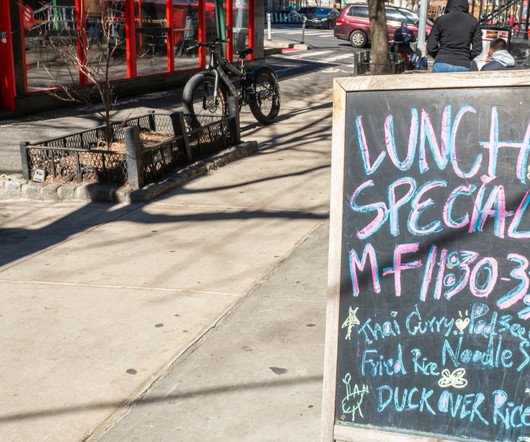 LUNCH
SPECIAL
M-F 11:30 3
Thai Curry Pad See
Fried Rice Noodle S
DUCK OVER Rice